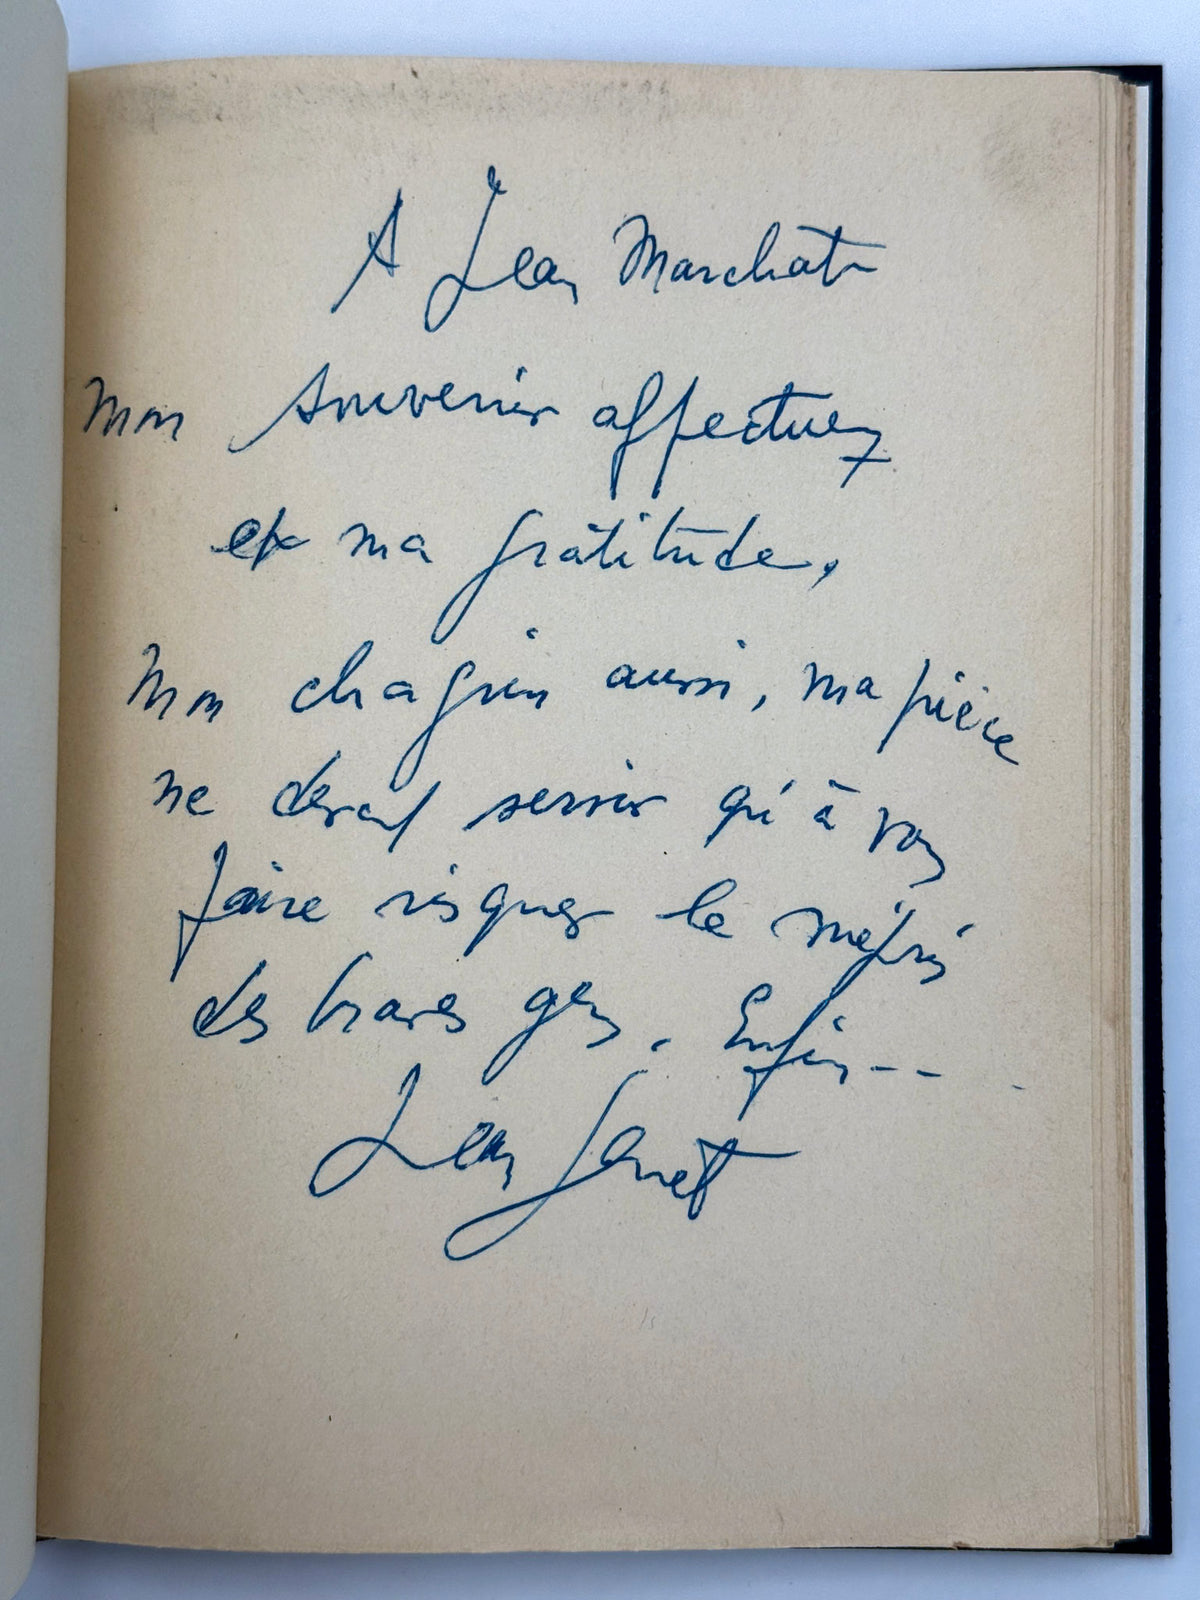 A Jean Marchat
Mon souvenir affectueux
et ma gratitude,
Mon chagrin aussi, ma pièce
ne devant servir qu'à vous
faire risquer le mépris
des braves gens. Enfin---
Jean Genet